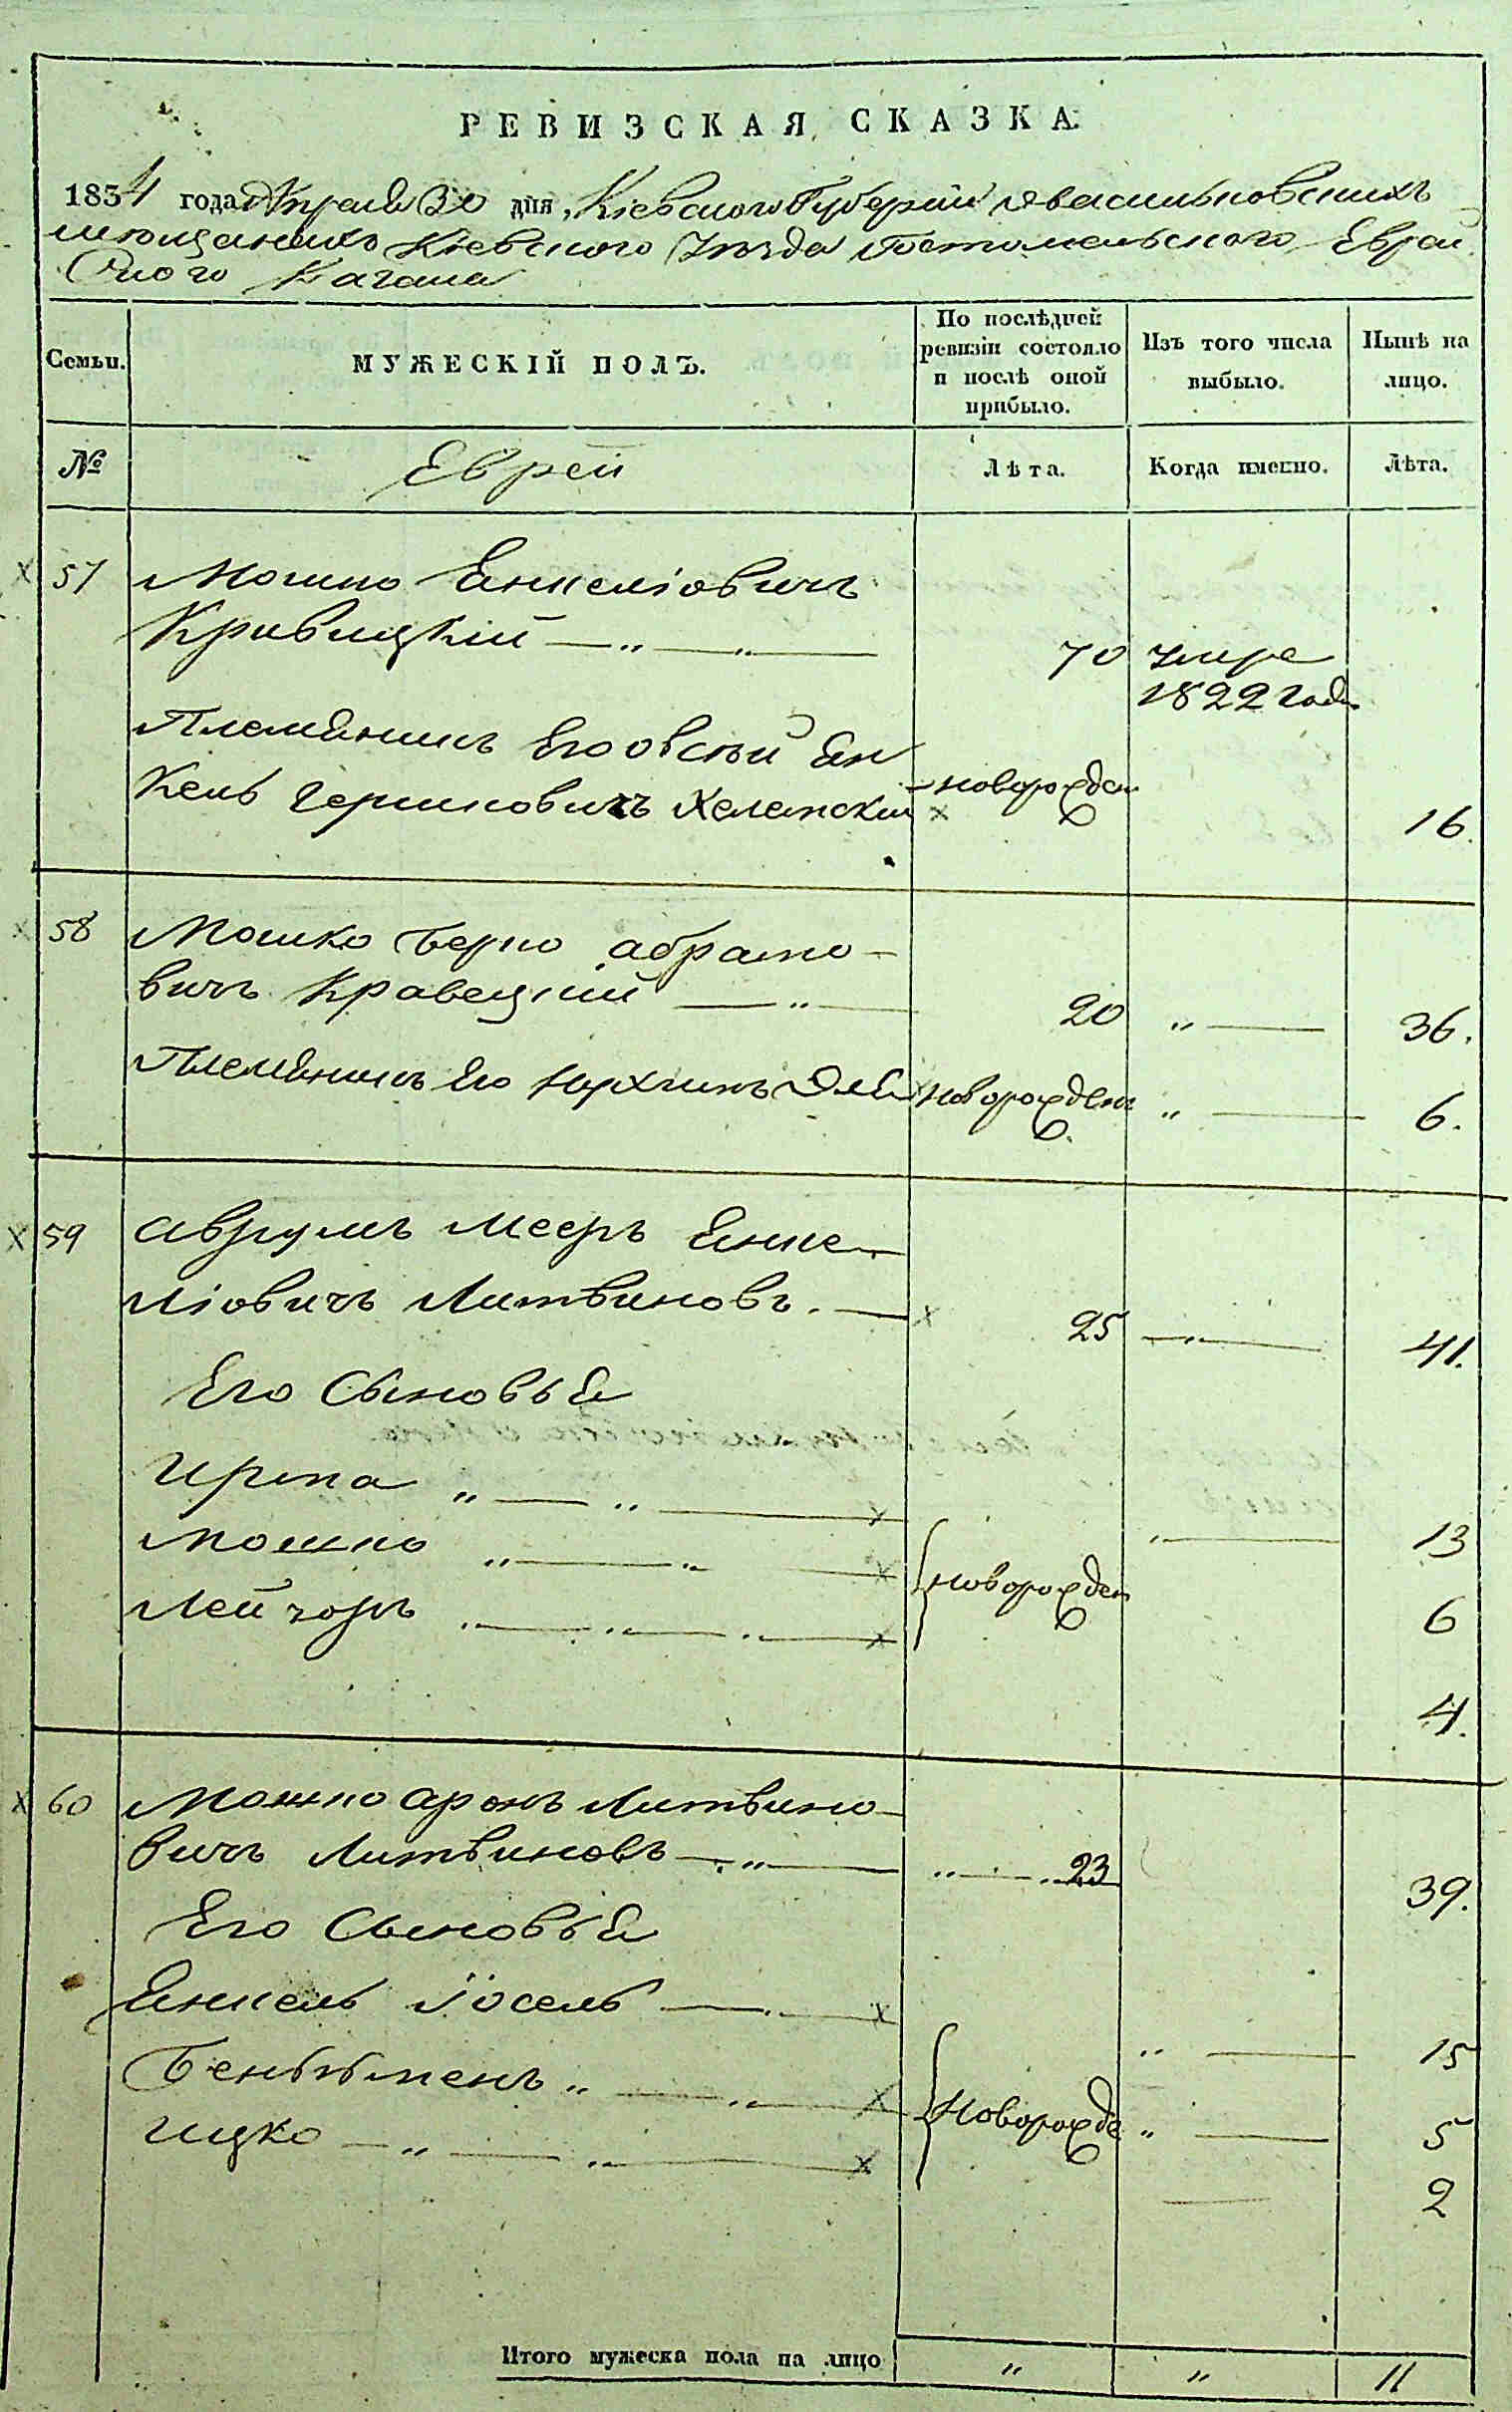 РЕВИЗСКАЯ СКАЗКА.
1834 года Апреля 30 дня, Кіевского Губерніи Васильковскихъ
мещанихъ Кіевского Уезда Гостомельского Еврей
ского Кагала
Семьи.
МУЖЕСКІЙ ПОЛЪ.
По послѣдней ревизіи состояло и послѣ оной прибыло.
Изъ того числа выбыло.
Нынѣ на лицо.
№
Еврей
Лѣта.
Когда именно.
Лѣта.
57 Мошко Янкеліовичъ
Кривицкій — „ — „ — 70 умре
1822 года
Племянникъ Его Овсѣй Ян
кель Гершковичъ новорожден 16.
58 Мошко Берко Абрамо-
вичъ Кравецкій — „ — 20 „ — 36.
Племянникъ Его новорожден „ — 6.
59 Аврумъ Мееръ Янке-
ліовичъ Литвиновъ. — 25 — „ — 41.
Его Сыновья
„ — „ — „ — 13
Мошко „ — „ — новорожден 6
„ — „ — „ — 4.
60 Мошко Аронъ Литвино-
вичъ Литвиновъ — „ — „ — „ 23 39.
Его Сыновья
Янкель Іосель — „ — „ — 15
Беньямень „ — „ — новорожде „ — 5
Ицко — „ — „ — — 2
Итого мужеска пола на лицо „ „ 11